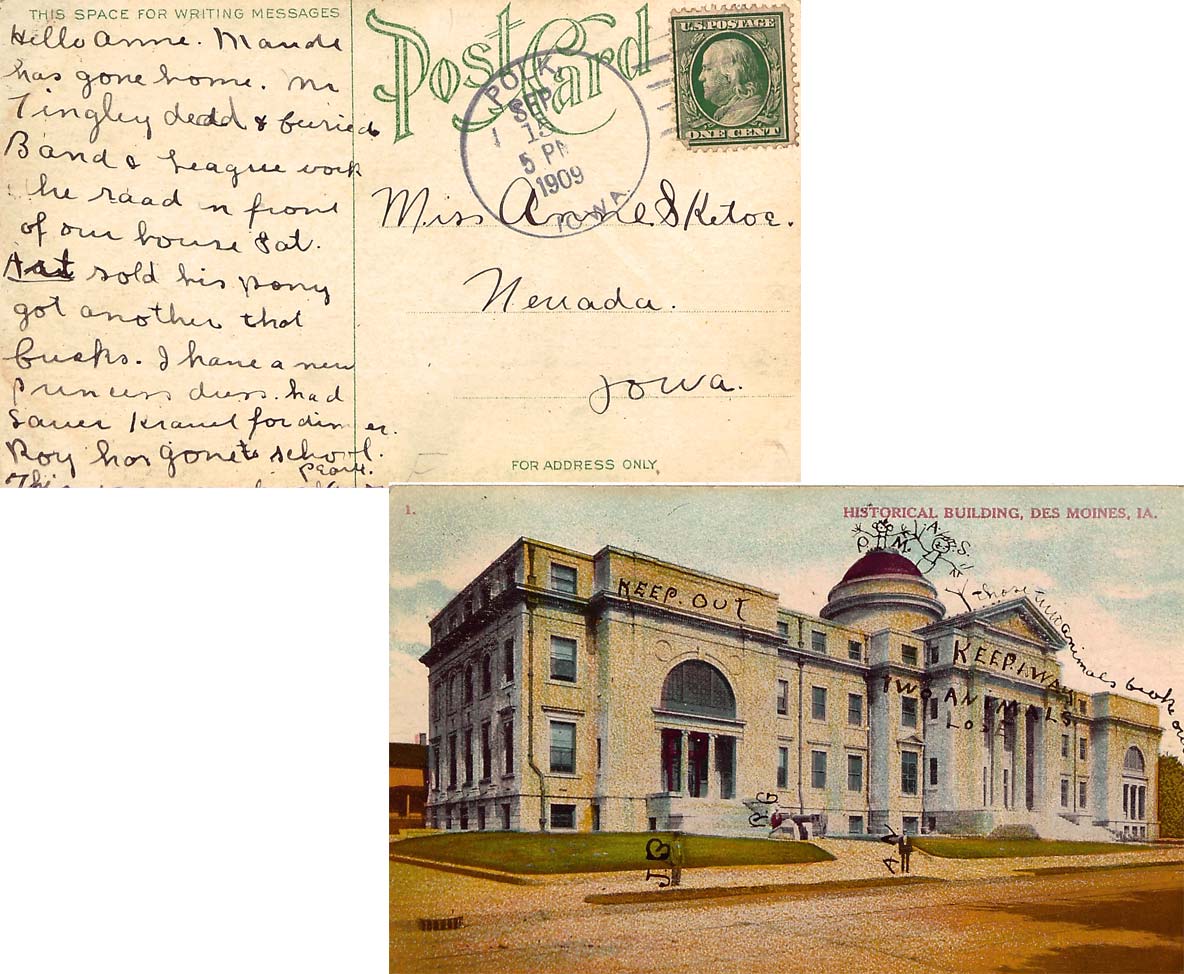 THIS SPACE FOR WRITING MESSAGES
Hello Anne. Maude
has gone home. Mr
Tingley dedd & buried
Band & League work
the raad n front
of our house Sat.
sold his pony
got another that
bucks. I have a new
princess dress. had
Sauer Kraut for dinner.
Roy has gone to school.
Pearl.
This
Post Card
POLK,
SEP
15
5 PM
1909
IOWA.
U.S. POSTAGE
ONE CENT
Miss Anne Sketoe.
Nevada.
Iowa.
FOR ADDRESS ONLY
1.
HISTORICAL BUILDING, DES MOINES, IA.
P. M.
A. S.
those two animals broke out
KEEP. OUT
KEEP. AWAY
TWO ANEMALS.
LOSE
J B